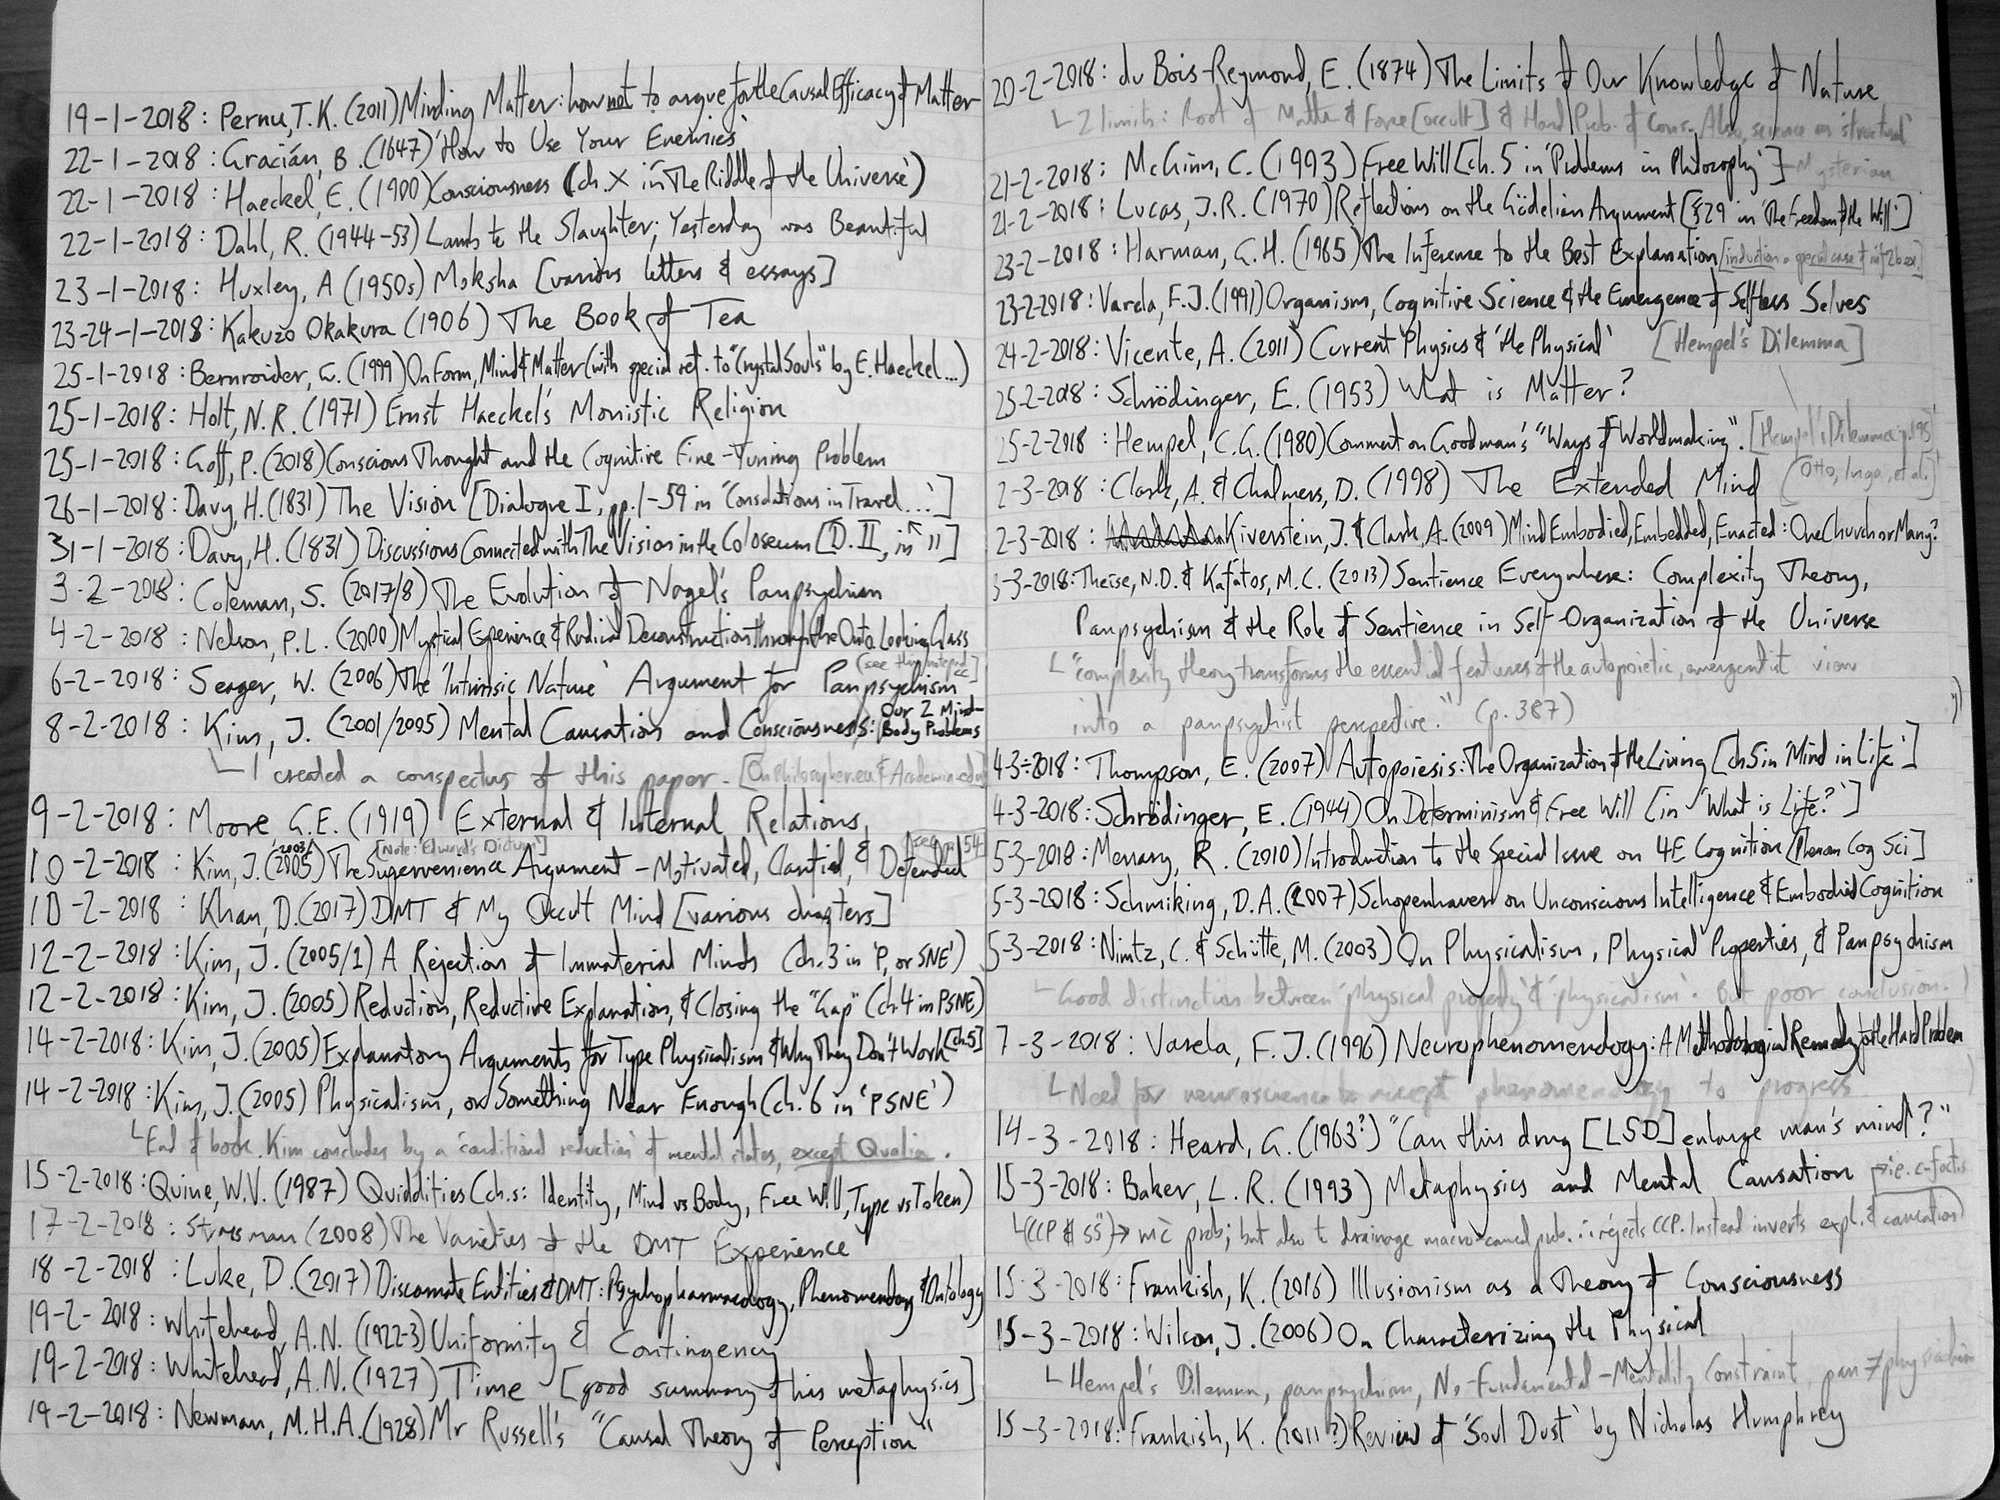 19-1-2018: Pernu, T.K. (2011) Minding Matter: how not to argue for the Causal Efficacy of Matter
22-1-2018: Gracián, B. (1647) 'How to Use Your Enemies'
22-1-2018: Haeckel, E. (1900) Consciousness (ch. X in 'The Riddle of the Universe')
22-1-2018: Dahl, R. (1944-53) Lamb to the Slaughter; Yesterday was Beautiful
23-1-2018: Huxley, A (1950s) Moksha [various letters & essays]
23-24-1-2018: Kakuzo Okakura (1906) The Book of Tea
25-1-2018: Bernroider, G. (1999) On Form, Mind & Matter (with special ref. to "Crystal Souls" by E. Haeckel...)
25-1-2018: Holt, N.R. (1971) Ernst Haeckel's Monistic Religion
25-1-2018: Goff, P. (2018) Conscious Thought and the Cognitive Fine-Tuning Problem
26-1-2018: Davy, H. (1831) The Vision [Dialogue I, pp. 1-59 in 'Consolations in Travel...']
31-1-2018: Davy, H. (1831) Discussions Connected with The Vision in the Coloseum [D. II, in "]
3-2-2018: Coleman, S. (2017/8) The Evolution of Nagel's Panpsychism
4-2-2018: Nelson, P.L. (2000) Mystical Experience & Radical Deconstruction through the Onto. Looking Glass
(see this notepad
6-2-2018: Seager, W. (2006) The 'Intrinsic Nature' Argument for Panpsychism
8-2-2018: Kim, J. (2001/2005) Mental Causation and Consciousness: Our 2 Mind-Body Problems
└ I created a conspectus of this paper. [On Philosopher.eu & Academia.edu]
9-2-2018: Moore G.E. (1919) External & Internal Relations,
[Note: 'Edward's Dictum'] [see p. 54]
10-2-2018: Kim, J. (2003/2005) The Supervenience Argument - Motivated, Clarified, & Defended
10-2-2018: Khan, D. (2017) DMT & My Occult Mind [various chapters]
12-2-2018: Kim, J. (2005/1) A Rejection of Immaterial Minds (ch. 3 in 'P, or SNE')
12-2-2018: Kim, J. (2005) Reduction, Reductive Explanation, & Closing the "Gap" (ch. 4 in PSNE)
14-2-2018: Kim, J. (2005) Explanatory Arguments for Type Physicalism & Why They Don't Work [ch. 5]
14-2-2018: Kim, J. (2005) Physicalism, or Something Near Enough (ch. 6 in 'PSNE')
└ End of book. Kim concludes by a 'conditional reduction' of mental states, except Qualia.
15-2-2018: Quine, W.V. (1987) Quiddities (ch.s: Identity, Mind vs Body, Free Will, Type vs Token)
17-2-2018: Strassman (2008) The Varieties of the DMT Experience
18-2-2018: Luke, D. (2017) Discarnate Entities & DMT: Psychopharmacology, Phenomenology & Ontology
19-2-2018: Whitehead, A.N. (1922-3) Uniformity & Contingency
19-2-2018: Whitehead, A.N. (1927) Time [good summary of his metaphysics]
19-2-2018: Newman, M.H.A. (1928) Mr Russell's "Causal Theory of Perception"
20-2-2018: du Bois-Reymond, E. (1874) The Limits of Our Knowledge of Nature
└ 2 limits: Root of Matter & Force [occult] & Hard Prob. of Cons. Also, science as 'structural'
21-2-2018: McGinn, C. (1993) Free Will [ch. 5 in 'Problems in Philosophy'] - Mysterian
21-2-2018: Lucas, J.R. (1970) Reflections on the Gödelian Argument [§29 in 'The Freedom of the Will']
23-2-2018: Harman, G.H. (1965) The Inference to the Best Explanation [induction a special case of inf. 2 b. ex.]
23-2-2018: Varela, F.J. (1991) Organism, Cognitive Science & the Emergence of Selfless Selves
24-2-2018: Vicente, A. (2011) Current Physics & 'the Physical' [Hempel's Dilemma]
25-2-2018: Schrödinger, E. (1953) What is Matter?
25-2-2018: Hempel, C.G. (1980) Comment on Goodman's "Ways of Worldmaking". [Hempel's Dilemma p. 195]
2-3-2018: Clark, A. & Chalmers, D. (1998) The Extended Mind [Otto, Inga, et al.]
2-3-2018: Kiverstein, J. & Clark, A. (2009) Mind Embodied, Embedded, Enacted: One Church or Many?
3-3-2018: Theise, N.D. & Kafatos, M.C. (2013) Sentience Everywhere: Complexity Theory,
Panpsychism & the Role of Sentience in Self-Organization of the Universe
└ "complexity theory transforms the essential features of the autopoietic, emergentist view
into a panpsychist perspective." (p. 387)
4-3-2018: Thompson, E. (2007) Autopoiesis: The Organization of the Living [ch 5 in 'Mind in Life']
4-3-2018: Schrödinger, E. (1944) On Determinism & Free Will [in 'What is Life?']
5-3-2018: Menary, R. (2010) Introduction to the Special Issue on 4E Cognition [Phenom Cog Sci]
5-3-2018: Schmiking, D.A. (2007) Schopenhauer on Unconscious Intelligence & Embodied Cognition
5-3-2018: Nimtz, C. & Schütte, M. (2003) On Physicalism, Physical Properties, & Panpsychism
└ Good distinction between 'physical property' & 'physicalism'. But poor conclusion.
7-3-2018: Varela, F.J. (1996) Neurophenomenology: A Methodological Remedy to the Hard Problem
└ Need for neuroscience to accept phenomenology to progress
14-3-2018: Heard, G. (1963?) "Can this drug [LSD] enlarge man's mind?"
15-3-2018: Baker, L.R. (1993) Metaphysics and Mental Causation
└ (CCP & SS) → mc prob; but also to drainage macro-causal prob. ∴ rejects CCP. Instead inverts expl. & causation
15-3-2018: Frankish, K. (2016) Illusionism as a Theory of Consciousness
15-3-2018: Wilson, J. (2006) On Characterizing the Physical
└ Hempel's Dilemma, panpsychism, No-Fundamental-Mentality Constraint, pan ≠ physicalism
15-3-2018: Frankish, K. (2011?) Review of 'Soul Dust' by Nicholas Humphrey